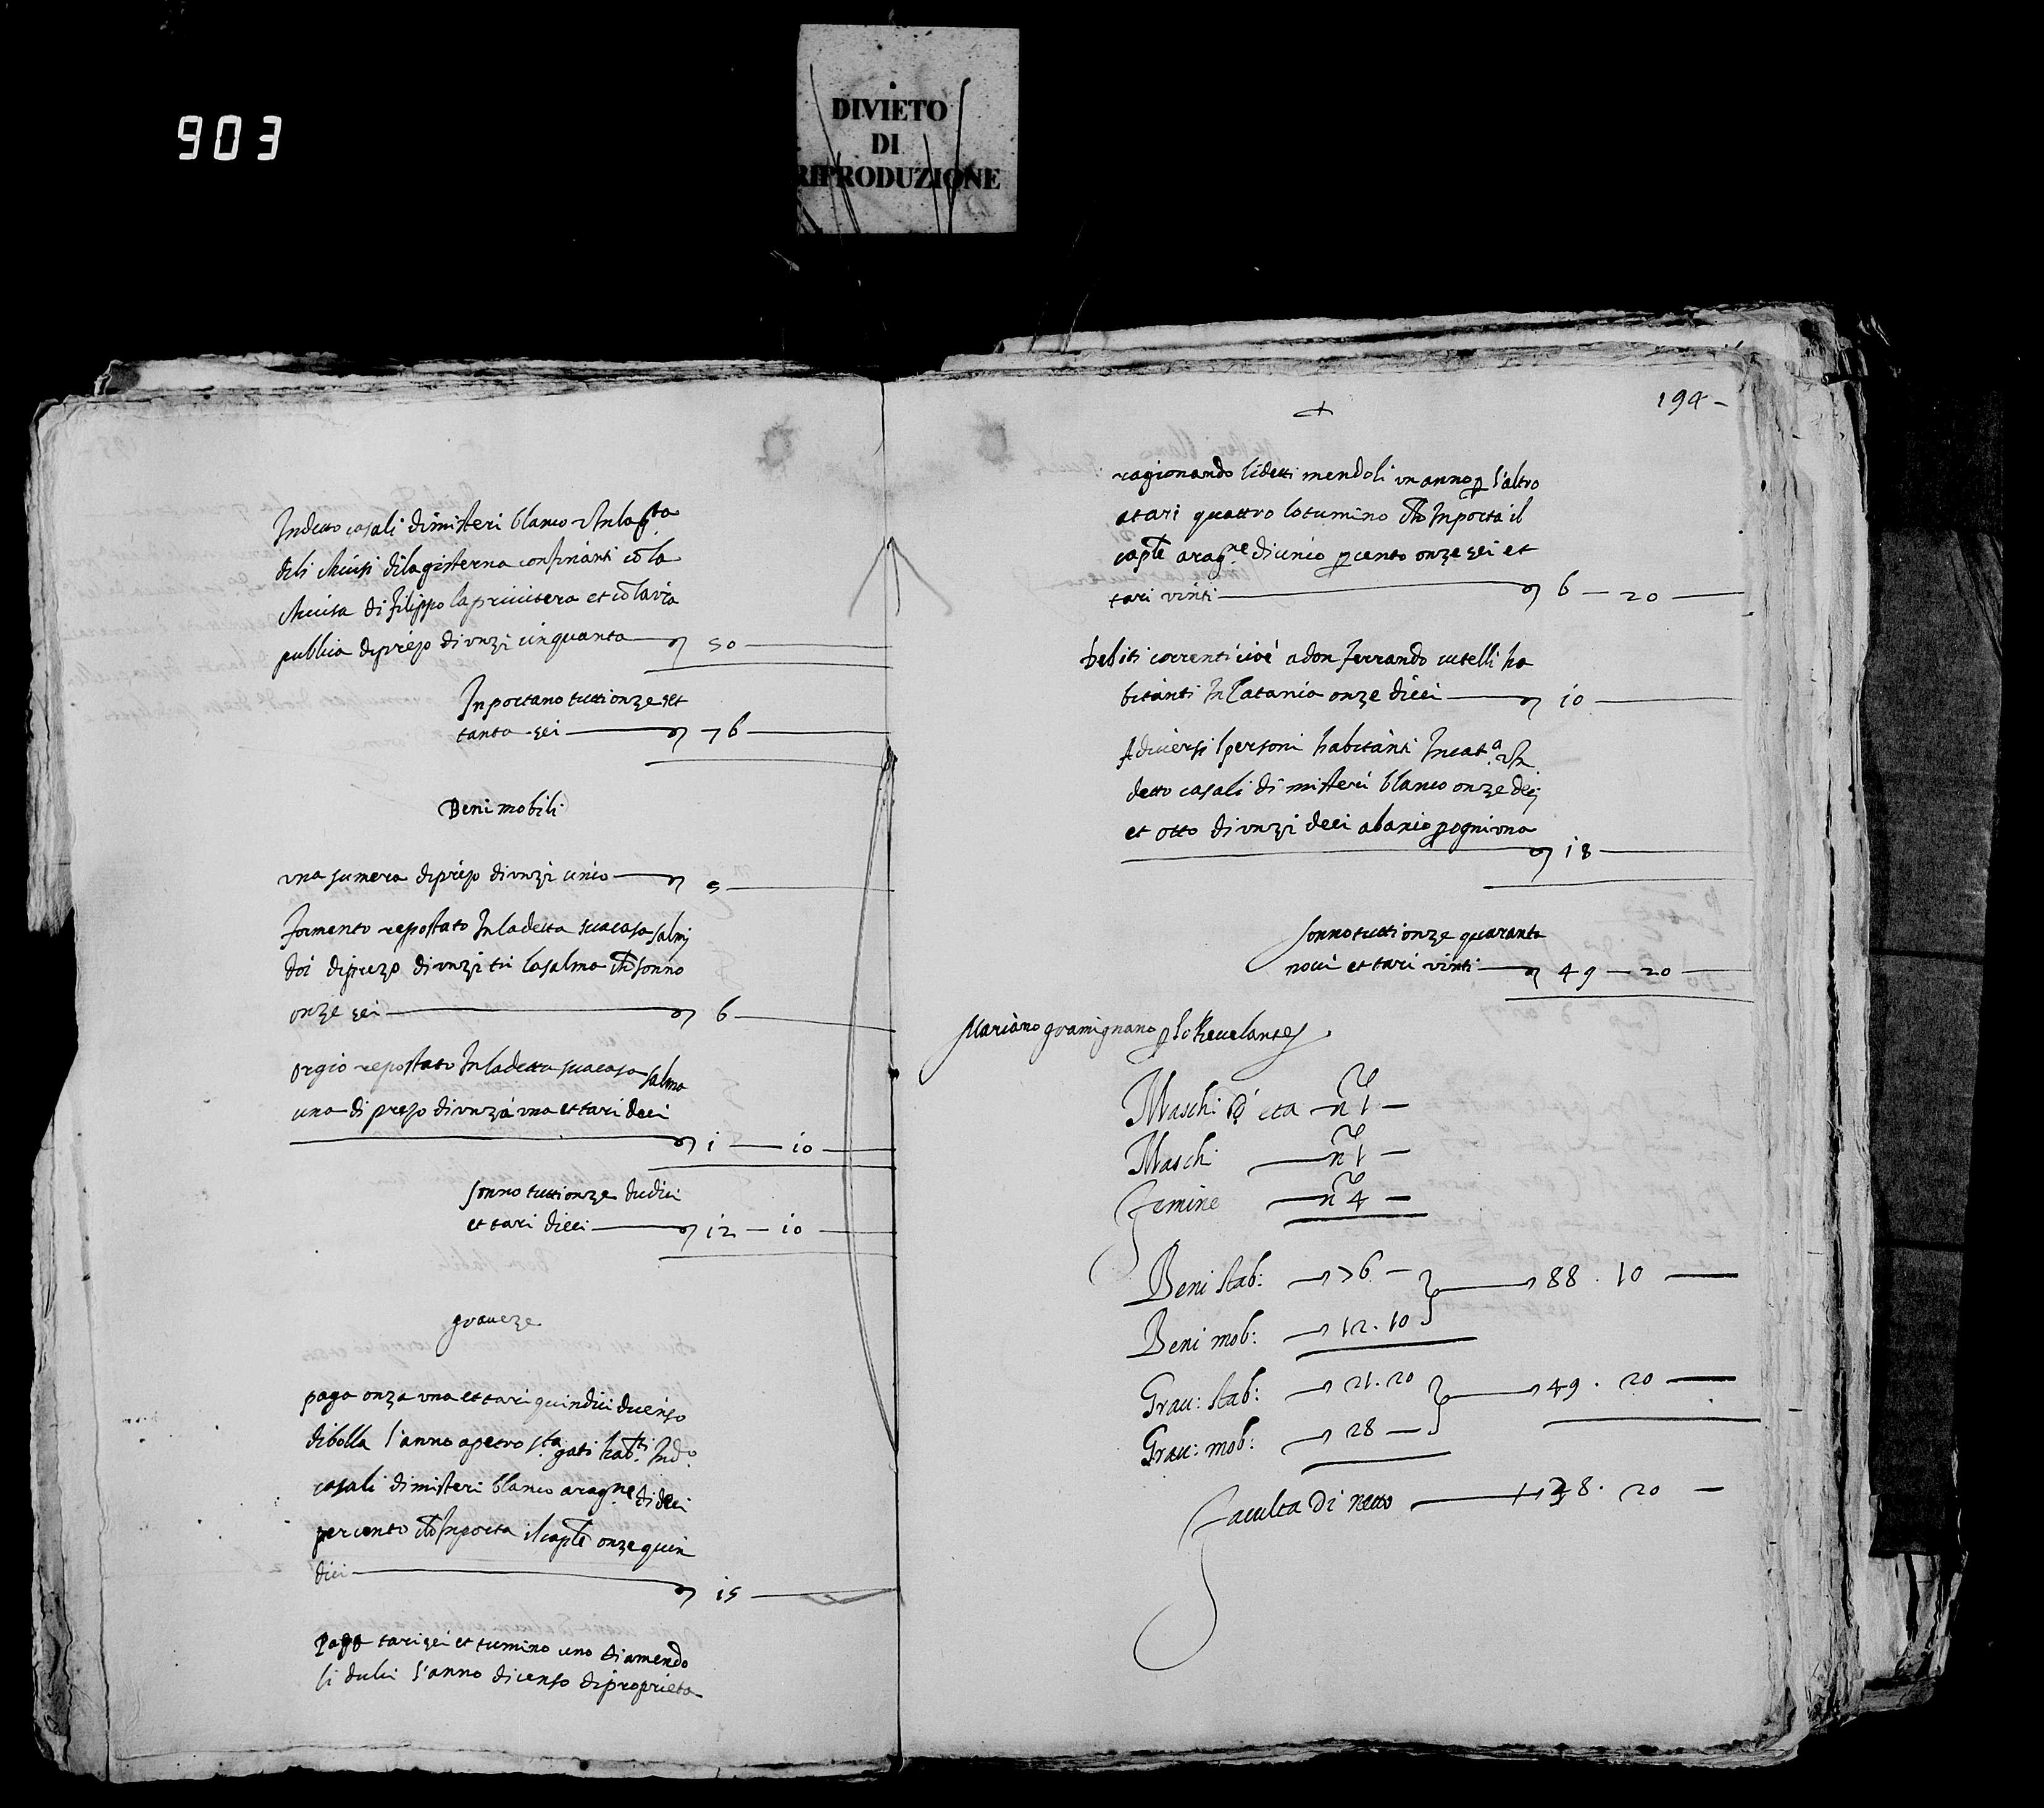 903
DIVIETO
DI
RIPRODUZIONE
In detto casali di misteri blanco et In la q.ta
deli chiusi di la gisterna confinanti co la
chiusa di filippo la privitera et co la via
publica di prezo di unzi cinquanta 50
Inportano tutti onze set
tanta sei 76
Beni mobili
una sumera di prezo di unzi cinco 5
formento repostato In la detta sua casa salmi
doi di prezo di unzi tri la salma ch sonno
onze sei 6
orgio repostato In la detta sua casa salma
una di prezo di unza una et tari deci
1 — 10
sonno tutti onze dudici
et tari dieci 12 — 10
graveze
paga onza una et tari quindici di censo
di bolla l'anno a petro s.ta gati hab.ti In d.o
casali di misteri blanco a rag.ne di deci
per cento ch Inporta il cap.le onze quin
dici 15
Paga tari sei et tumino uno di amendo
li dulci l'anno di censo di proprieta
194
ragionando li detti mendoli un anno p l'altro
a tari quattro lo tumino ch Inporta il
cap.le a rag.ne di cinco p cento onze sei et
tari vinti 6 — 20
Debiti correnti cioe a don ferrando cutelli ha
bitanti In Catania onze dieci 10
A diversi persuni habitanti In cat.a et In
detto casali di misteri blanco onze deci
et otto di unzi deci a bascio p ogni una
18
sonno tutti onze quaranta
novi et tari vinti 49 — 20
Mariano gramignano p lo Revelante
Maschi d' eta n.o 1
Maschi n.o 1
femine n.o 4
Beni stab: 76 88 . 10
Beni mob: 12 . 10
Grav: stab: 21 . 20 49 . 20
Grav: mob: 28
faculta di netto 38 . 20